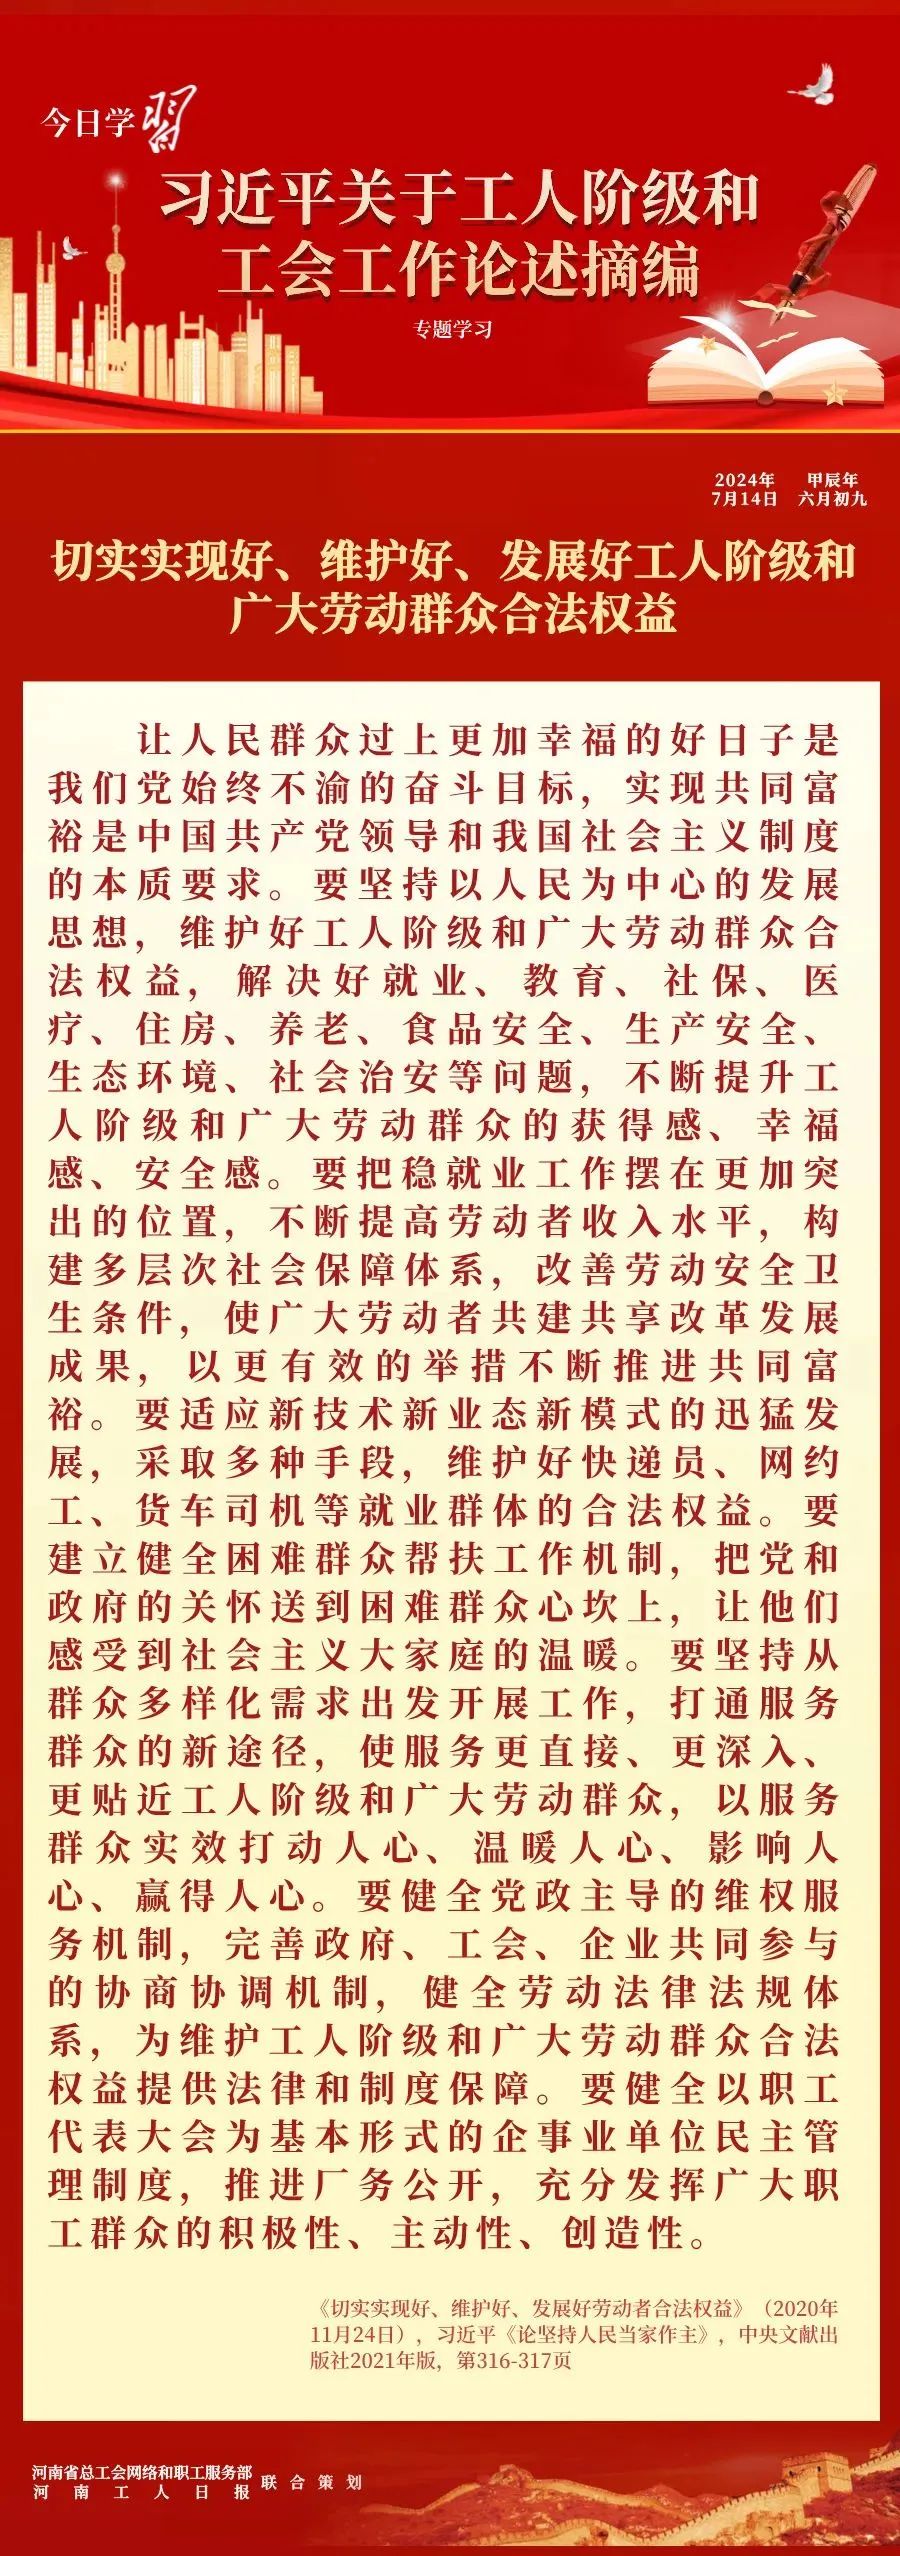 今日学習
习近平关于工人阶级和
工会工作论述摘编
专题学习
2024年 甲辰年
7月14日 六月初九
切实实现好、维护好、发展好工人阶级和
广大劳动群众合法权益
让人民群众过上更加幸福的好日子是
我们党始终不渝的奋斗目标，实现共同富
裕是中国共产党领导和我国社会主义制度
的本质要求。要坚持以人民为中心的发展
思想，维护好工人阶级和广大劳动群众合
法权益，解决好就业、教育、社保、医
疗、住房、养老、食品安全、生产安全、
生态环境、社会治安等问题，不断提升工
人阶级和广大劳动群众的获得感、幸福
感、安全感。要把稳就业工作摆在更加突
出的位置，不断提高劳动者收入水平，构
建多层次社会保障体系，改善劳动安全卫
生条件，使广大劳动者共建共享改革发展
成果，以更有效的举措不断推进共同富
裕。要适应新技术新业态新模式的迅猛发
展，采取多种手段，维护好快递员、网约
工、货车司机等就业群体的合法权益。要
建立健全困难群众帮扶工作机制，把党和
政府的关怀送到困难群众心坎上，让他们
感受到社会主义大家庭的温暖。要坚持从
群众多样化需求出发开展工作，打通服务
群众的新途径，使服务更直接、更深入、
更贴近工人阶级和广大劳动群众，以服务
群众实效打动人心、温暖人心、影响人
心、赢得人心。要健全党政主导的维权服
务机制，完善政府、工会、企业共同参与
的协商协调机制，健全劳动法律法规体
系，为维护工人阶级和广大劳动群众合法
权益提供法律和制度保障。要健全以职工
代表大会为基本形式的企事业单位民主管
理制度，推进厂务公开，充分发挥广大职
工群众的积极性、主动性、创造性。
《切实实现好、维护好、发展好劳动者合法权益》（2020年
11月24日），习近平《论坚持人民当家作主》，中央文献出
版社2021年版，第316-317页
河南省总工会网络和职工服务部
河南工人日报 联合策划